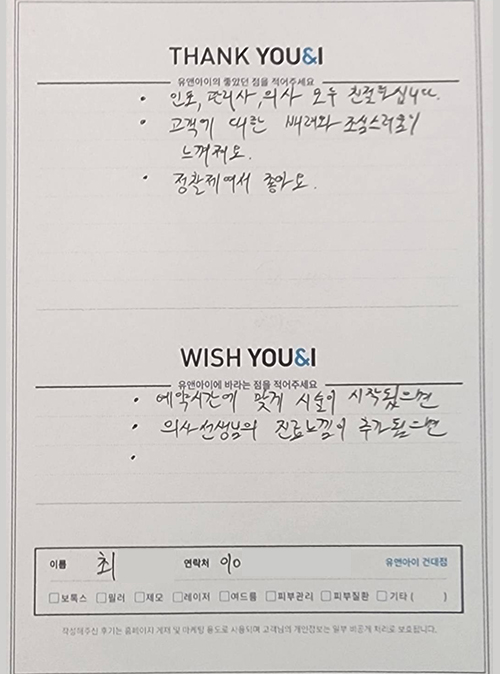 THANK YOU&I
유앤아이의 좋았던 점을 적어주세요
• 인포, 관리사, 의사 모두 친절하십니다.
• 고객에 대한 배려와 조심스러움이
느껴져요.
• 정찰제여서 좋아요.
WISH YOU&I
유앤아이에 바라는 점을 적어주세요
• 예약시간에 맞게 시술이 시작됬으면
• 의사선생님의 진료느낌이 추가됨으면
•
이름 최 연락처 010 유앤아이 건대점
□보톡스 □필러 □제모 □레이저 □여드름 □피부관리 □피부질환 □기타 ( )
작성해주신 후기는 홈페이지 게재 및 마케팅 용도로 사용되며 고객님의 개인정보는 일부 비공개 처리로 보호됩니다.